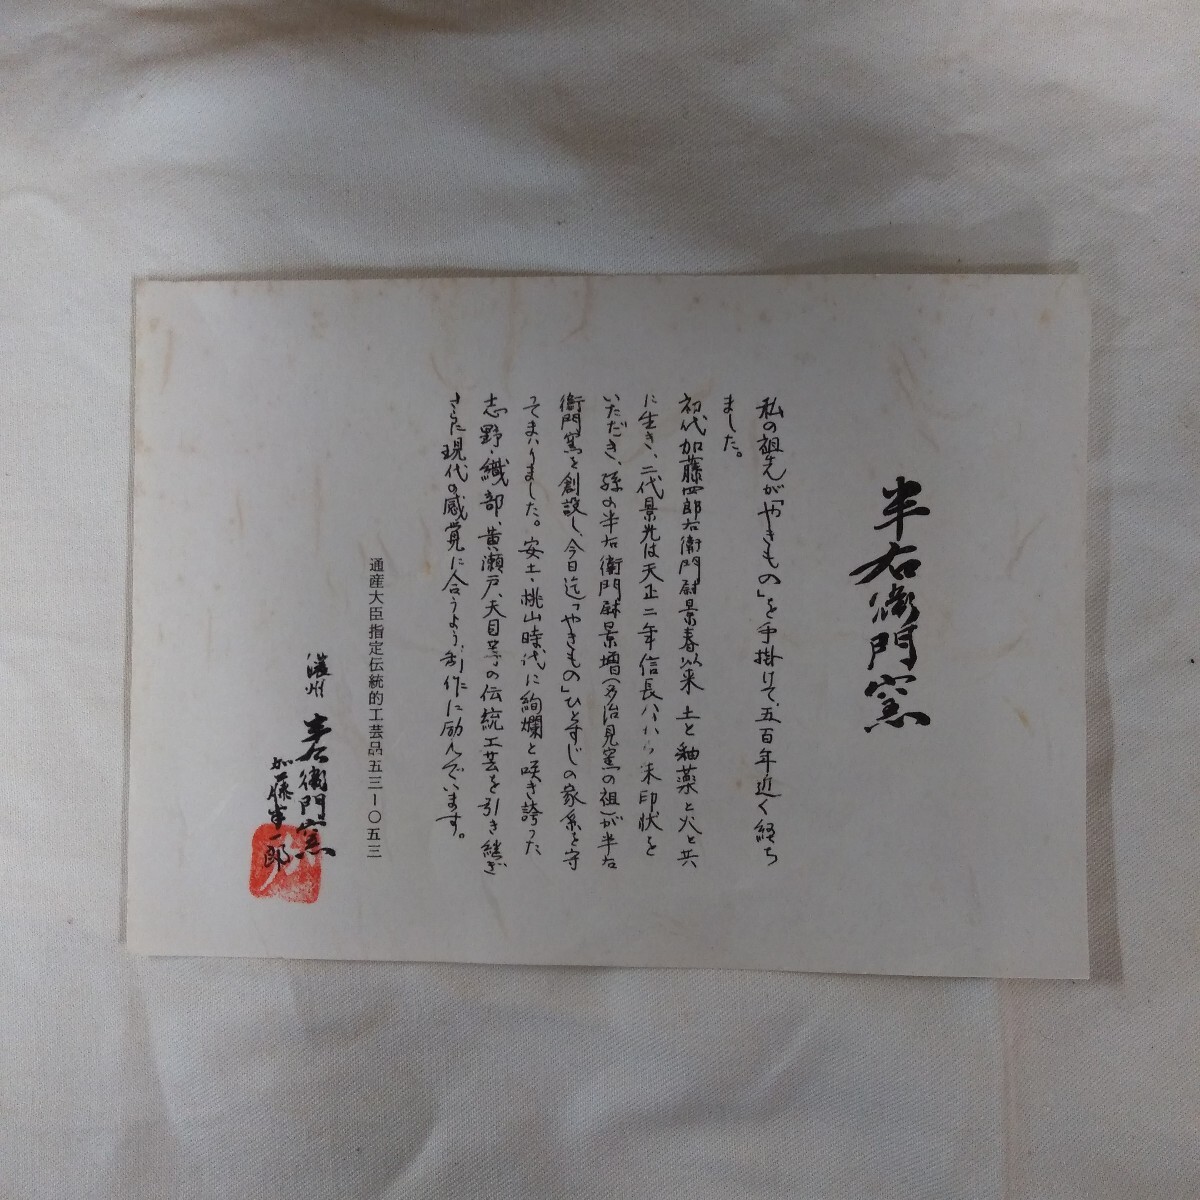 半右衛門窯
私の祖先が「やきもの」を手掛けて、五百年近く経ち
ました。
初代加藤四郎右衛門尉景春以来 土と釉薬と火と共
に生き、二代景光は天正二年信長公から朱印状を
いただき、孫の半右衛門尉景増(多治見窯の祖)が半右
衛門窯を創設し、今日迄「やきもの」ひとすじの家系を守
ってまいりました。安土・桃山時代に絢爛と咲き誇った
志野・織部、黄瀬戸、天目等の伝統工芸を引き継ぎ
さらに現代の感覚に合うよう、制作に励んでいます。
通産大臣指定伝統的工芸品五三ー〇五三
濃州 半右衛門窯
加藤 一郎